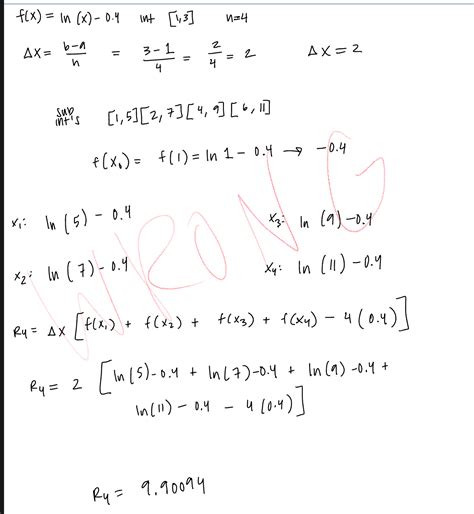 f(x) = ln (x) - 0.4   int   [1,3]   n=4
Δx = b-a/n = 3-1/4 = 2/4 = 2   Δx = 2
sub int's   [1,5][2,7][4,9][6,11]
f(x₀) = f(1) = ln 1 - 0.4 → -0.4
x₁: ln (5) - 0.4   x₃: ln (9) - 0.4
x₂: ln (7) - 0.4   x₄: ln (11) - 0.4
WRONG
R₄ = Δx [f(x₁) + f(x₂) + f(x₃) + f(x₄) - 4(0.4)]
R₄ = 2 [ln(5) - 0.4 + ln(7) - 0.4 + ln(9) - 0.4 +
ln(11) - 0.4 - 4(0.4)]
R₄ = 9.90094